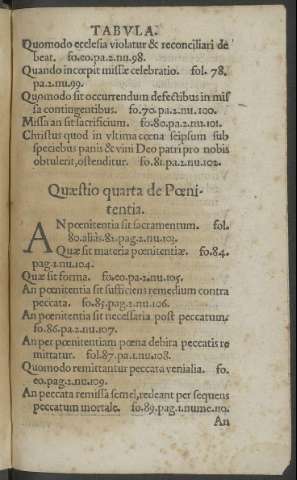 TABVLA.
Quomodo ecclesia violatur & reconciliari de
beat. fo.eo.pa.2.nu.98.
Quando incœpit missæ celebratio. fol. 78.
pa.2.nu.99.
Quomodo sit occurrendum defectibus in mis
sa contingentibus. fo.70.pa.2.nu.100.
Missa an sit sacrificium. fo.80.pa.2.nu.101.
Christus quod in vltima cœna seipsum sub
speciebus panis & vini Deo patri pro nobis
obtulerit, ostenditur. fo.81.pa.2.nu.102.
Quæstio quarta de Pœni-
tentia.
AN pœnitentia sit sacramentum. fol.
80.aliàs.82.pag.2.nu.103.
Quæ sit materia pœnitentiæ. fo.84.
pag.2.nu.104.
Quæ sit forma. fo.eo.pa.2.nu.105.
An pœnitentia sit sufficiens remedium contra
peccata. fo.85.pag.2.nu.106.
An pœnitentia sit necessaria post peccatum.
fo.86.pa.2.nu.107.
An per pœnitentiam pœna debita peccatis re
mittatur. fol.87.pa.1.nu.108.
Quomodo remittantur peccata venialia. fo.
eo.pag.2.nu.109.
An peccata remissa semel, redeant per sequens
peccatum mortale. fo.89.pag.1.nume.110.
An